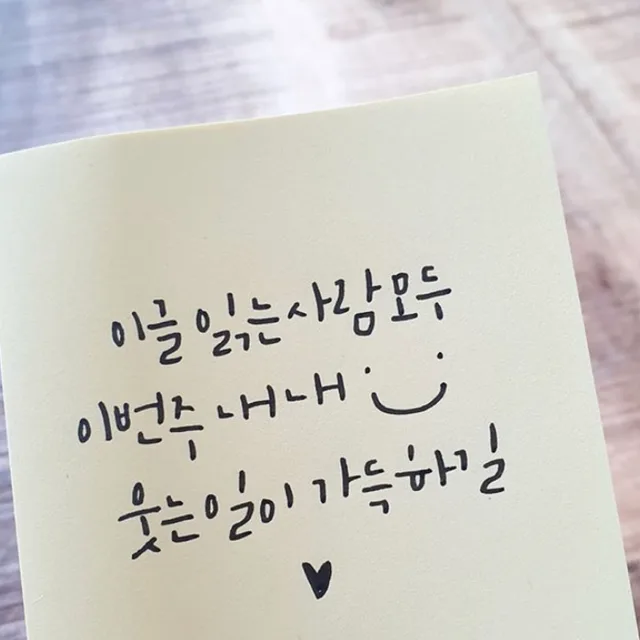 이글 읽는 사람 모두
이번주 내내
웃는 일이 가득하길